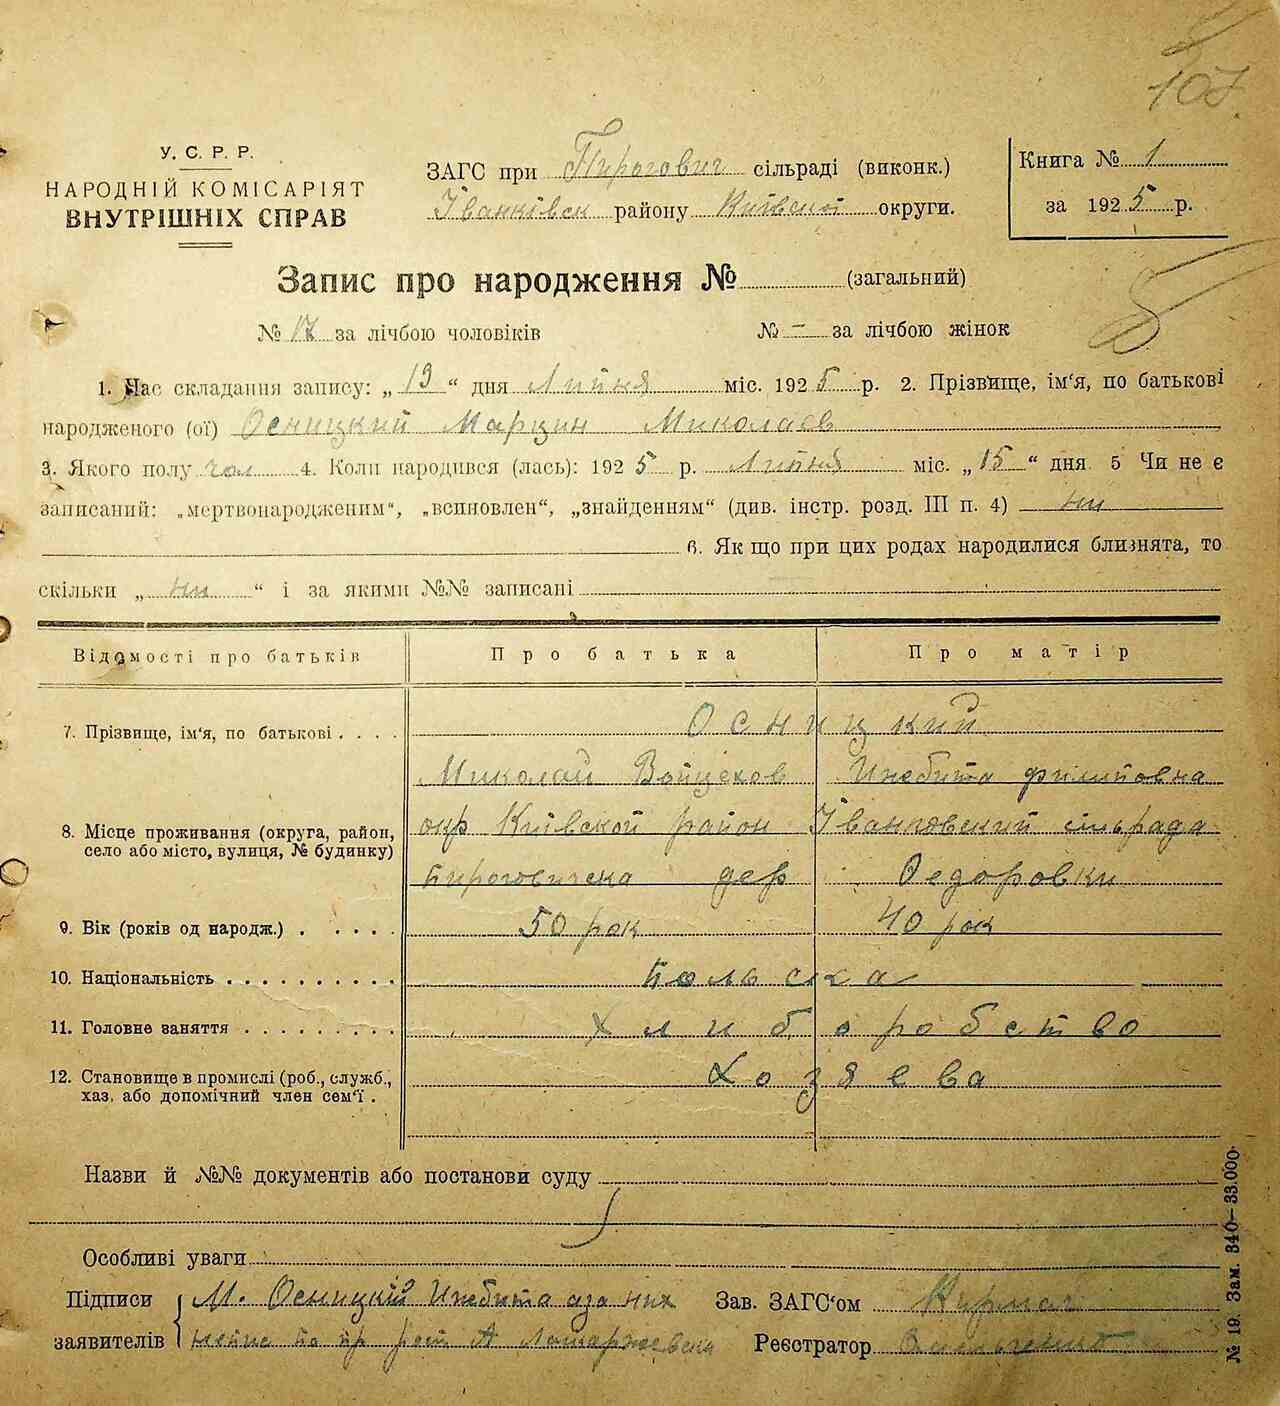 107
У. С. Р. Р.
НАРОДНІЙ КОМІСАРІЯТ
ВНУТРІШНІХ СПРАВ
ЗАГС при Пирогович сільраді (виконк.)
Іванківск району Київской округи.
Книга № 1
за 1925 р.
Запис про народження № (загальний)
№ 17 за лічбою чоловіків № – за лічбою жінок
1. Час складання запису: „19“ дня Липня міс. 1925 р. 2. Прізвище, ім‘я, по батькові
народженого (ої) Осницкий Марцин Миколаев
3. Якого полу чол 4. Коли народився (лась): 1925 р. Липня міс. „15“ дня. 5 Чи не є
записаний: „мертвонародженим“, „всиновлен“, „знайденням“ (див. інстр. розд. III п. 4) ни
6. Як що при цих родах народилися близнята, то
скільки „ни“ і за якими №№ записані
Відомості про батьків Про батька Про матір
7. Прізвище, ім‘я, по батькові . . . . Осницкий
Миколай Войцехов Филиповна
8. Місце проживання (округа, район, село або місто, вулиця, № будинку) окр Київской район Іванковский сільрада
Пироговичска дер Федоровки
9. Вік (років од народж.) . . . . . 50 рок 40 рок
10. Національність . . . . . . . . . . Польска
11. Головне заняття . . . . . . . . . Хлиборобство
12. Становище в промислі (роб., служб., хаз, або допомічний член сем‘ї . Хозяева
Назви й №№ документів або постанови суду
Особливі уваги
Підписи М. Осницкий за них Зав. ЗАГС‘ом
заявителів А Реєстратор
№ 19. Зам. 340–33.000.